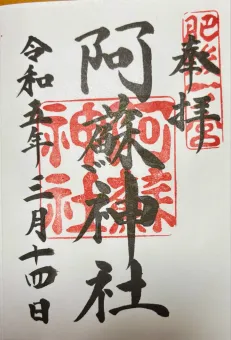 奉拝
肥後一宮
阿蘇神社
阿蘇
神社
令和五年三月十四日